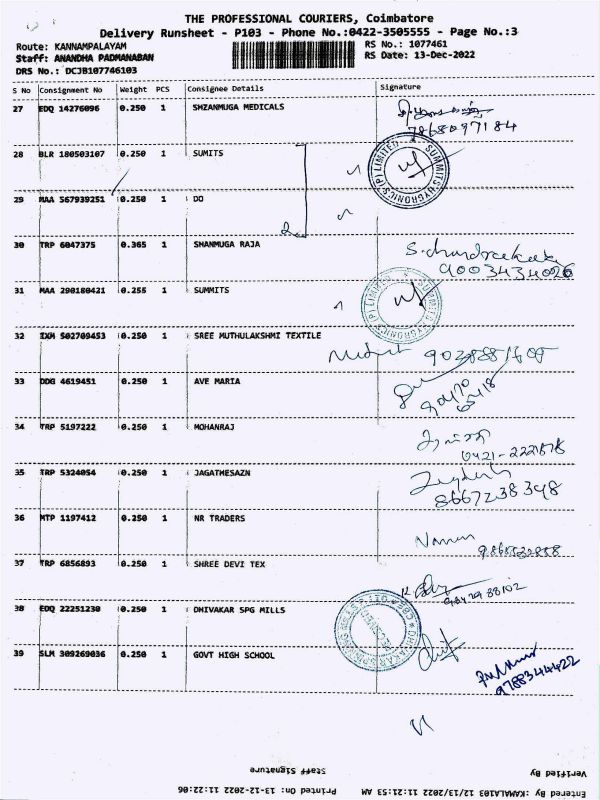 THE PROFESSIONAL COURIERS, Coimbatore
Delivery Runsheet - P103 - Phone No.:0422-3505555 - Page No.:3
Route: KANNAMPALAYAM RS No.: 1077461
Staff: ANANDHA PADMANABAN RS Date: 13-Dec-2022
DRS No.: DCJB107746103
S No Consignment No Weight PCS Consignee Details Signature
27 EDQ 14276096 0.250 1 SMZANMUGA MEDICALS
7868097184
28 BLR 180503107 0.250 1 SUMITS
29 MAA 567939251 0.250 1 DO
30 TRP 6047375 0.365 1 SHANMUGA RAJA
9003434026
31 MAA 290180421 0.255 1 SUMMITS
SUMMITS HYGRONICS (P) LIMITED
32 IXM 502709453 0.250 1 SREE MUTHULAKSHMI TEXTILE
33 DDG 4619451 0.250 1 AVE MARIA
34 TRP 5197222 0.250 1 MOHANRAJ
35 TRP 5324054 0.250 1 JAGATHESAZN
8667238348
36 MTP 1197412 0.250 1 NR TRADERS
37 TRP 6856893 0.250 1 SHREE DEVI TEX
38 EDQ 22251230 0.250 1 DHIVAKAR SPG MILLS
39 SLM 309269036 0.250 1 GOVT HIGH SCHOOL
9788344422
Staff Signature Verified By
Printed On: 13-12-2022 11:22:06 Entered By :KAMALA103 12/13/2022 11:21:53 AM